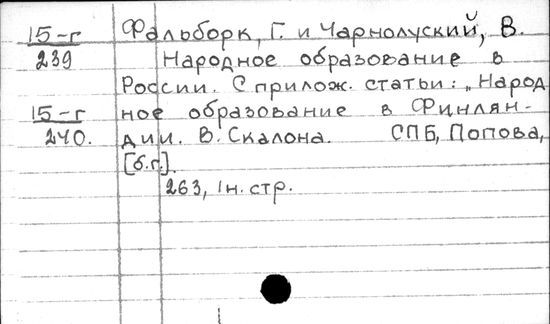 15-г Фальборк, Г. и Чарнолуский, В.
239 Народное образование в
России. С прилож. статьи: „Народ
15-г ное образование в Финлян-
240. дии. В. Скалона. СПБ, Попова,
[б.г.].
263, 1 н. стр.